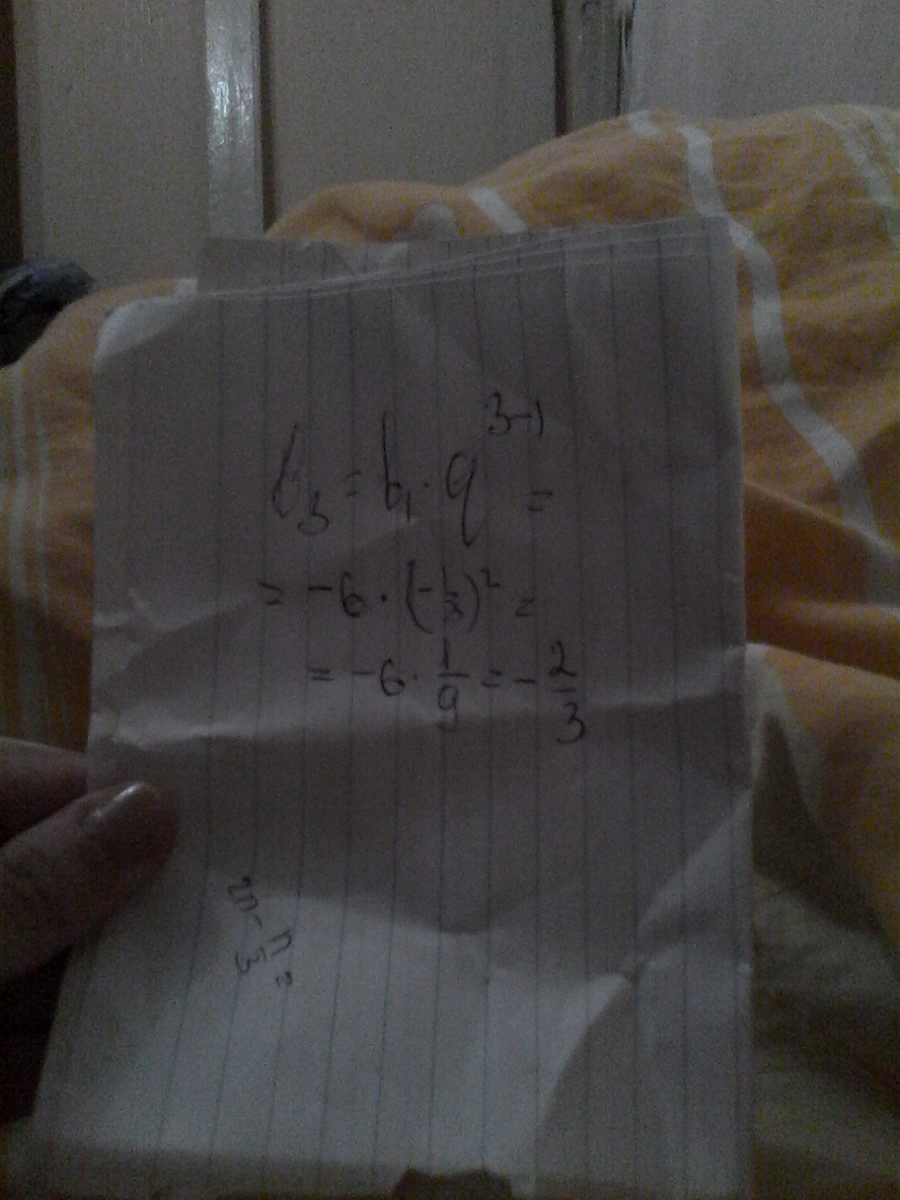 b₃ = b₁ · q³⁻¹ =
= -6 · (-1/3)² =
= -6 · 1/9 = - 2/3